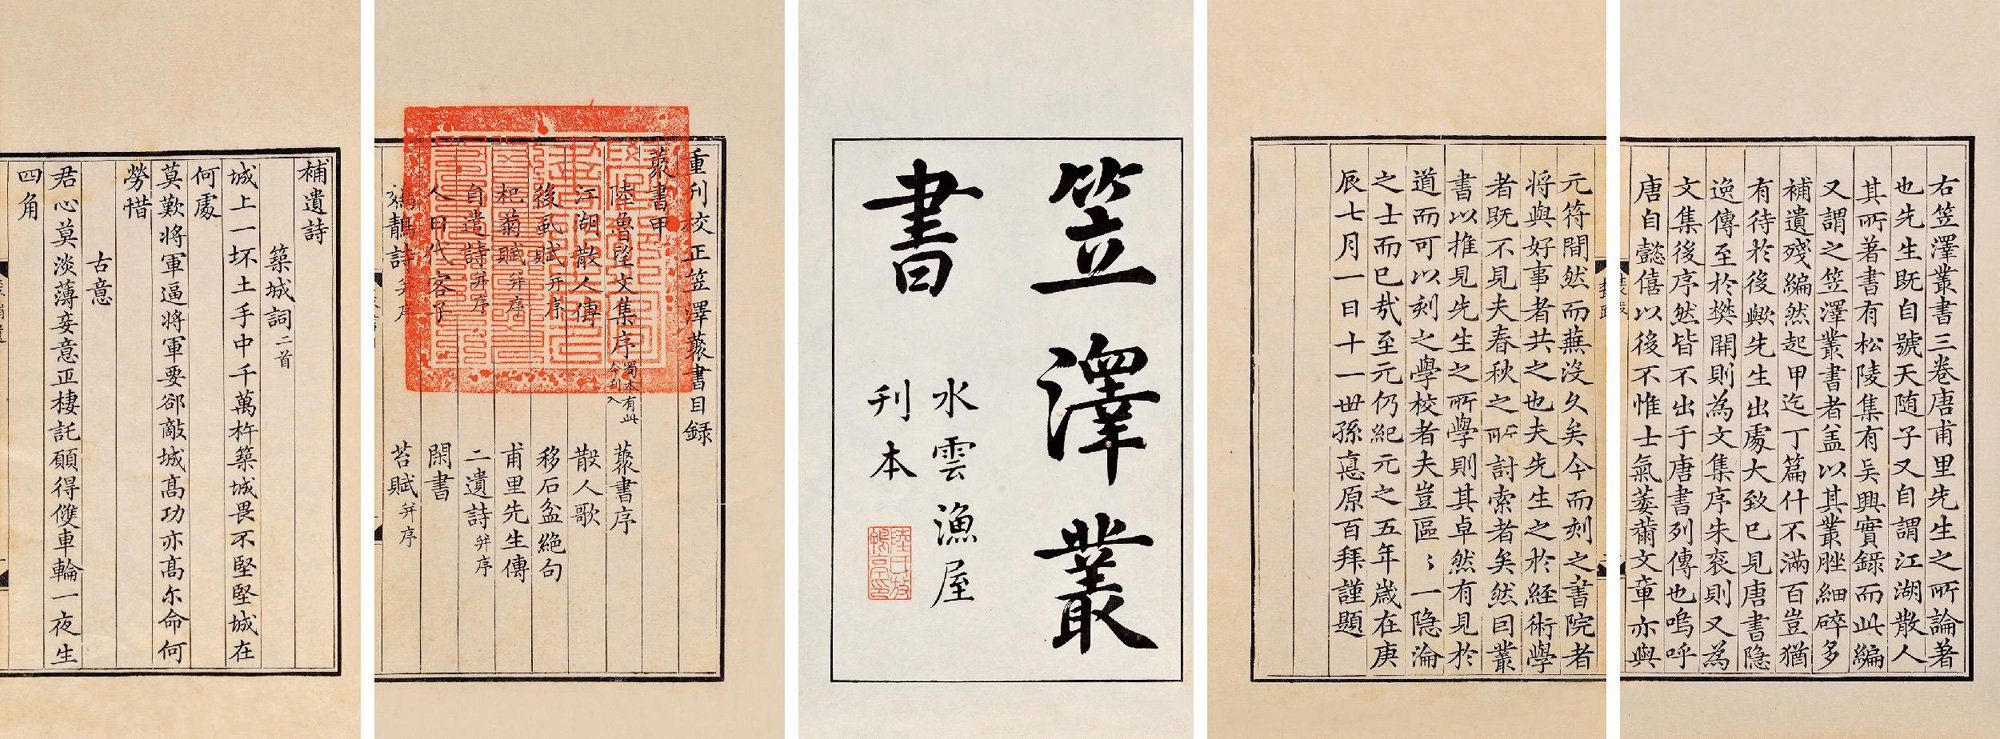 右笠澤叢書三卷唐甫里先生之所論著
也先生既自號天随子又自謂江湖散人
其所著書有松陵集有吳興實錄而此編
又謂之笠澤叢書者盖以其叢脞細碎多
補遺殘編然起甲迄丁篇什不滿百豈猶
有待於後歟先生出處大致已見唐書隐
逸傳至於樊開則為文集序朱衮則又為
文集後序然皆不出于唐書列傳也嗚呼
唐自懿僖以後不惟士氣萎薾文章亦與
元符間然而蕪沒久矣今而刻之書院者
將與好事者共之也夫先生之於經術學
者既不見夫春秋之所討索者矣然因叢
書以推見先生之所學則其卓然有見於
道而可以刻之學校者夫豈區〻一隐淪
之士而已哉至元仍紀元之五年歲在庚
辰七月一日十一世孫悳原百拜謹題
笠澤叢
書
水雲漁屋
刊本
重刊校正笠澤藂書目録
藂書甲
陸魯望文集序 蜀本有此今刊入 藂書序
江湖散人傳 散人歌
後虱賦并序 移石盆絶句
杞菊賦并序 甫里先生傳
自遣詩并序 二遺詩并序
人田代客子 閑書
鵁鶄詩并序 苔賦并序
補遺詩
築城詞二首
城上一坏土手中千萬杵築城畏不堅堅城在
何處
莫歎將軍逼將軍要郤敵城高功亦高尓命何
勞惜
古意
君心莫淡薄妾意正棲託願得雙車輪一夜生
四角